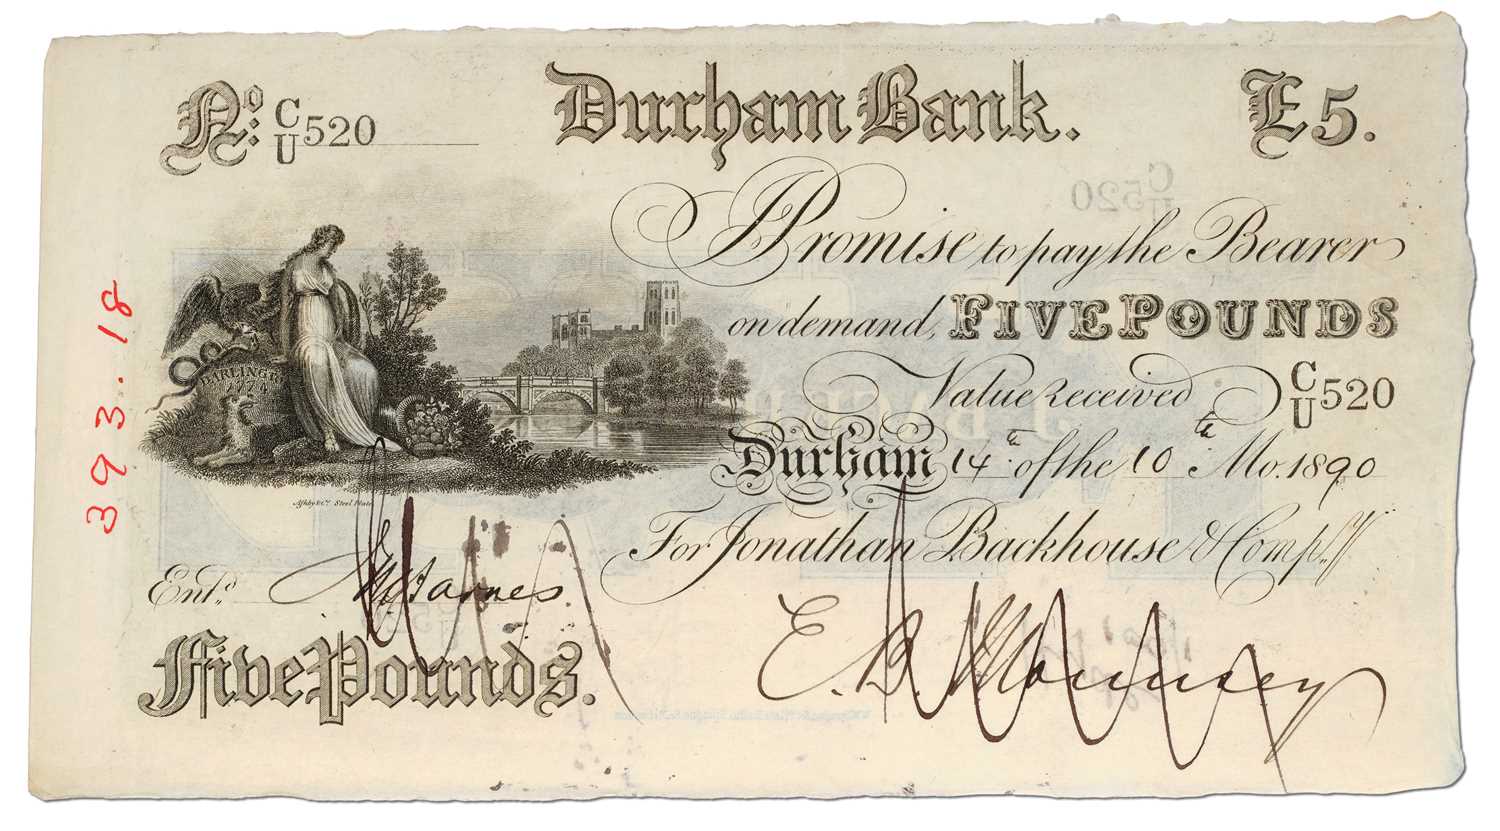 No. C/U 520 Durham Bank. £5.
I Promise to pay the Bearer
on demand, FIVE POUNDS
Value received C/U 520
Durham 14th of the 10th Mo. 1890
For Jonathan Backhouse & Compy.
DARLINGTON
1774
Ashby & Co. Steel Plate
Entd. Barnes.
E. B. Mounsey
Five Pounds.
393.18